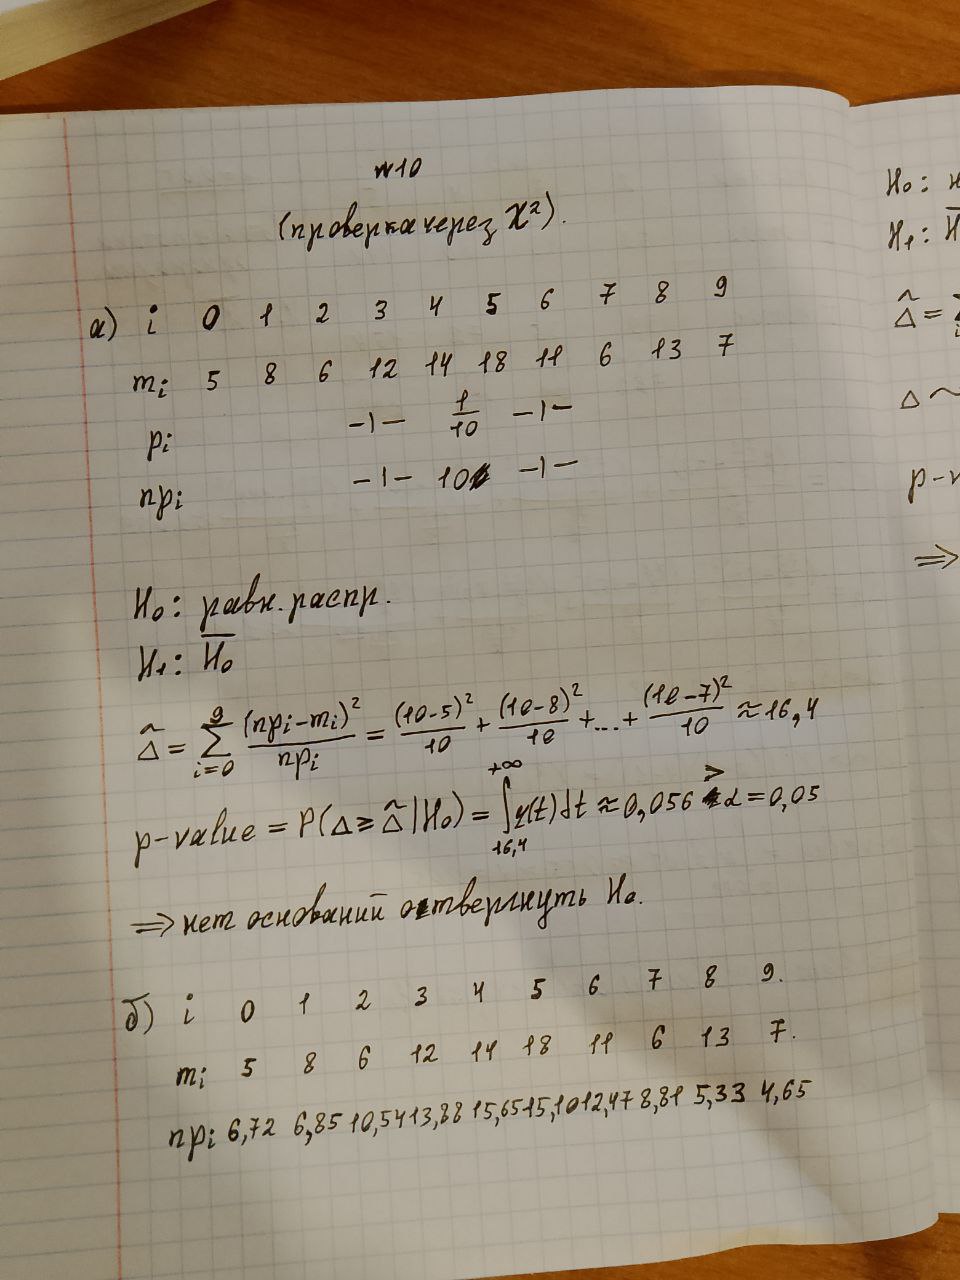 №10
(проверка через χ²).
а) i 0 1 2 3 4 5 6 7 8 9
mᵢ 5 8 6 12 14 18 11 6 13 7
pᵢ –ı– 1/10 –ı–
npᵢ –ı– 10 –ı–
H₀: равн. распр.
H₁: H̅₀
Δ̃ = ∑_{i=0}^{9} (npᵢ–mᵢ)²/npᵢ = (10–5)²/10 + (10–8)²/10 + ... + (10–7)²/10 ≈ 16,4
p-value = P(Δ ≥ Δ̃ | H₀) = ∫_{16,4}^{+∞} q(t)dt ≈ 0,056 > α = 0,05
⟹ нет оснований отвергнуть H₀.
б) i 0 1 2 3 4 5 6 7 8 9.
mᵢ 5 8 6 12 14 18 11 6 13 7.
npᵢ 6,72 6,85 10,54 13,88 15,65 15,10 12,47 8,81 5,33 4,65
H₀:
H₁:
Δ̃ =
Δ ~
p-v
⟹